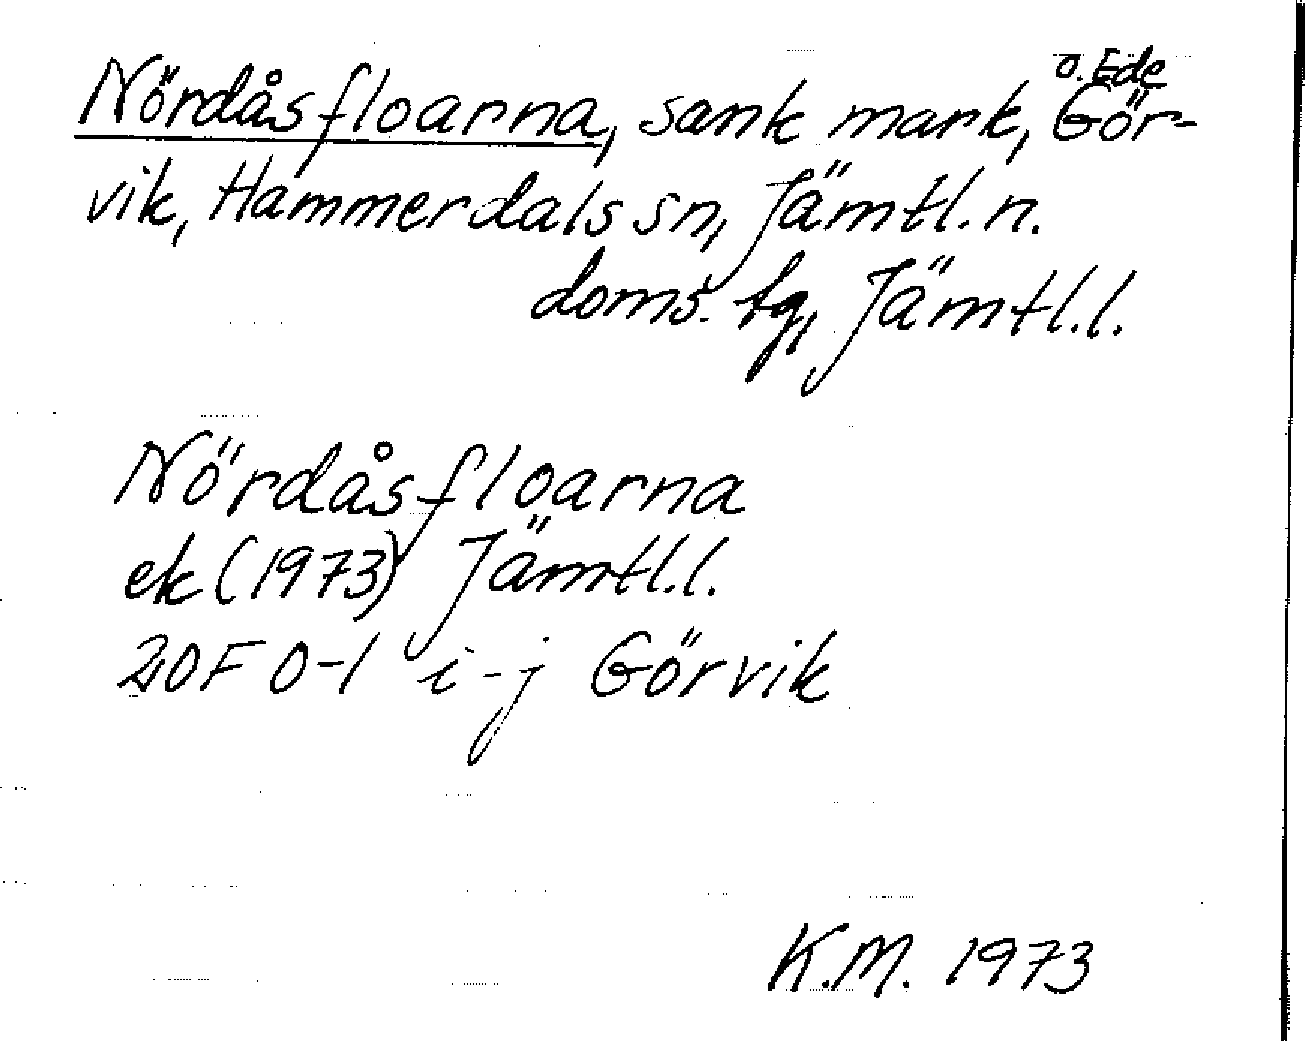 Nördåsfloarna, sank mark, Gör-
o. Ede
vik, Hammerdals sn, Jämtl. n.
doms. tg, Jämtl. l.
Nördåsfloarna
ek (1973) Jämtl. l.
20F 0-1 i-j Görvik
K.M. 1973